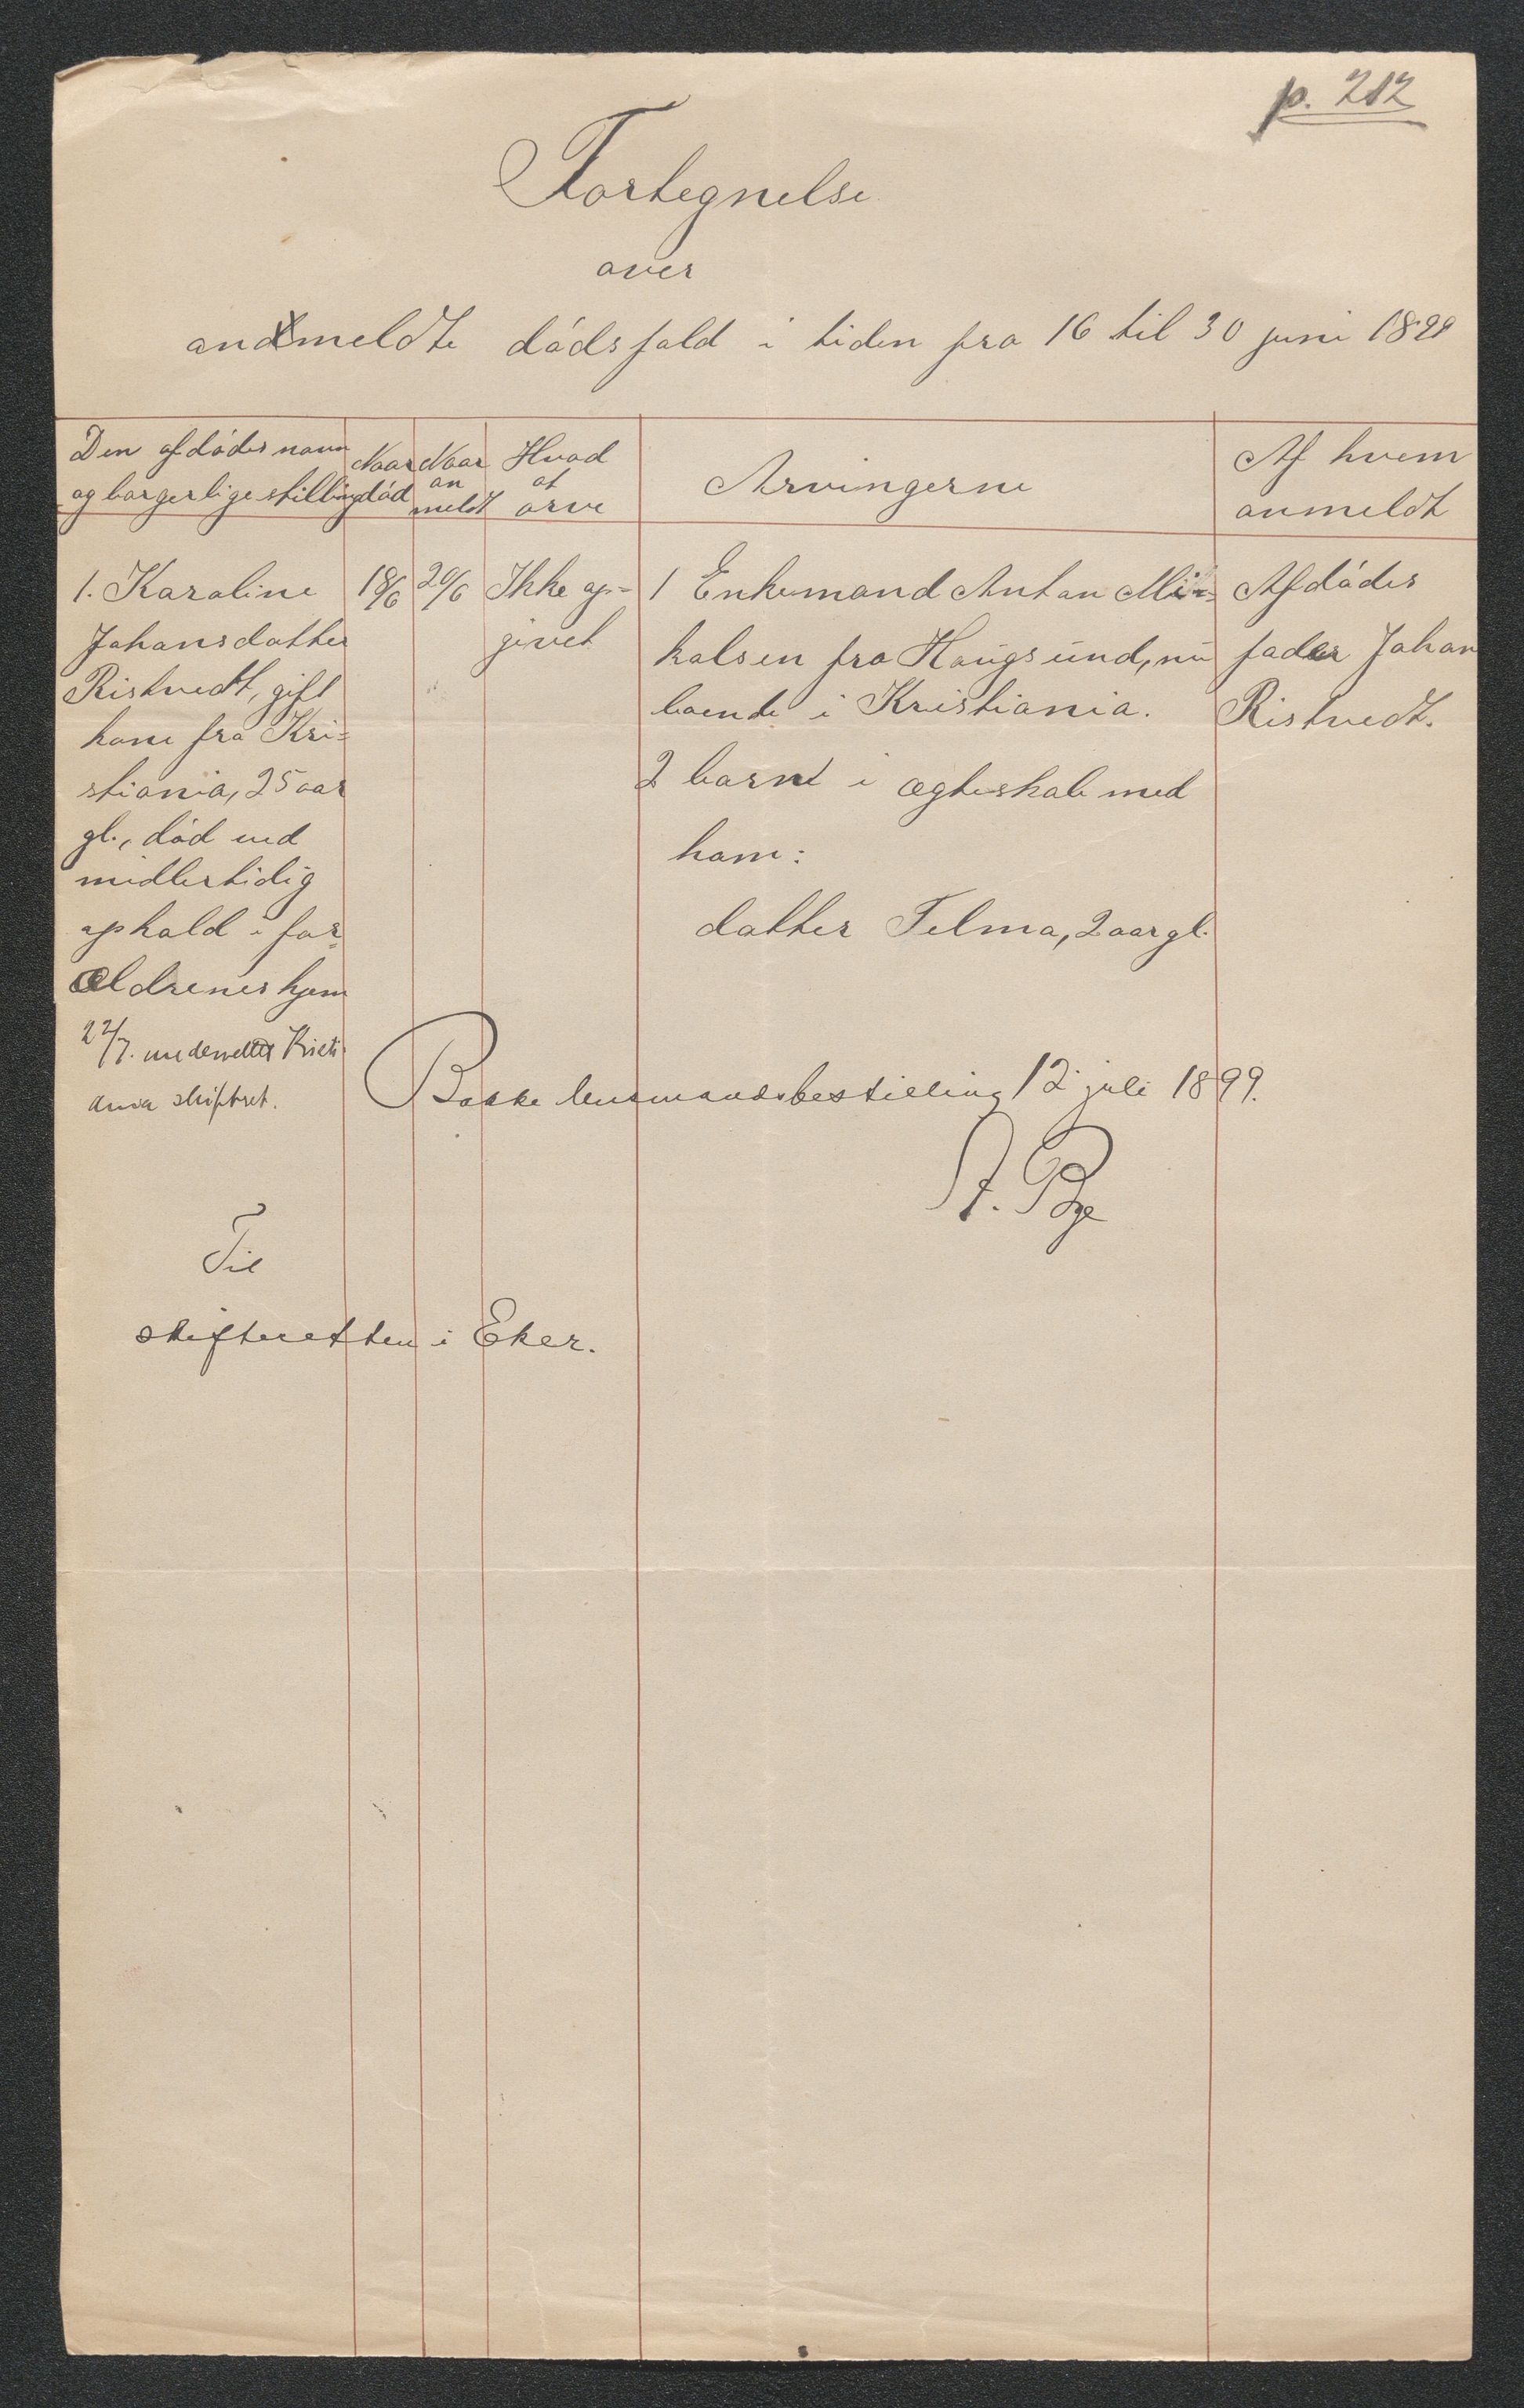 p. 212
Fortegnelse
over
anmeldte dödsfald i tiden fra 16 til 30 juni 1899
Den afdödes navn
og borgerlige stilling
Naar
död
Naar
an
meldt
Hvad
at
arve
Arvingerne
Af hvem
anmeldt
1. Karoline
Johansdatter
Ristvedt, gift
kone fra Kri=
stiania, 25 aar
gl., död ved
midlertidig
ophold i for=
ældrenes hjem
18/6
20/6
Ikke op=
givet
1 Enkemand Anton Mi=
kalsen fra Hougsund, nu
boende i Kristiania.
2 barn i ægteskab med
ham:
datter Telma, 2 aar gl.
Afdödes
fader Johan
Ristvedt.
22/7. underrettet Kristi
ania skiftret.
Bakke lensmandsbestilling 12 juli 1899.
Til
skifteretten i Eker.